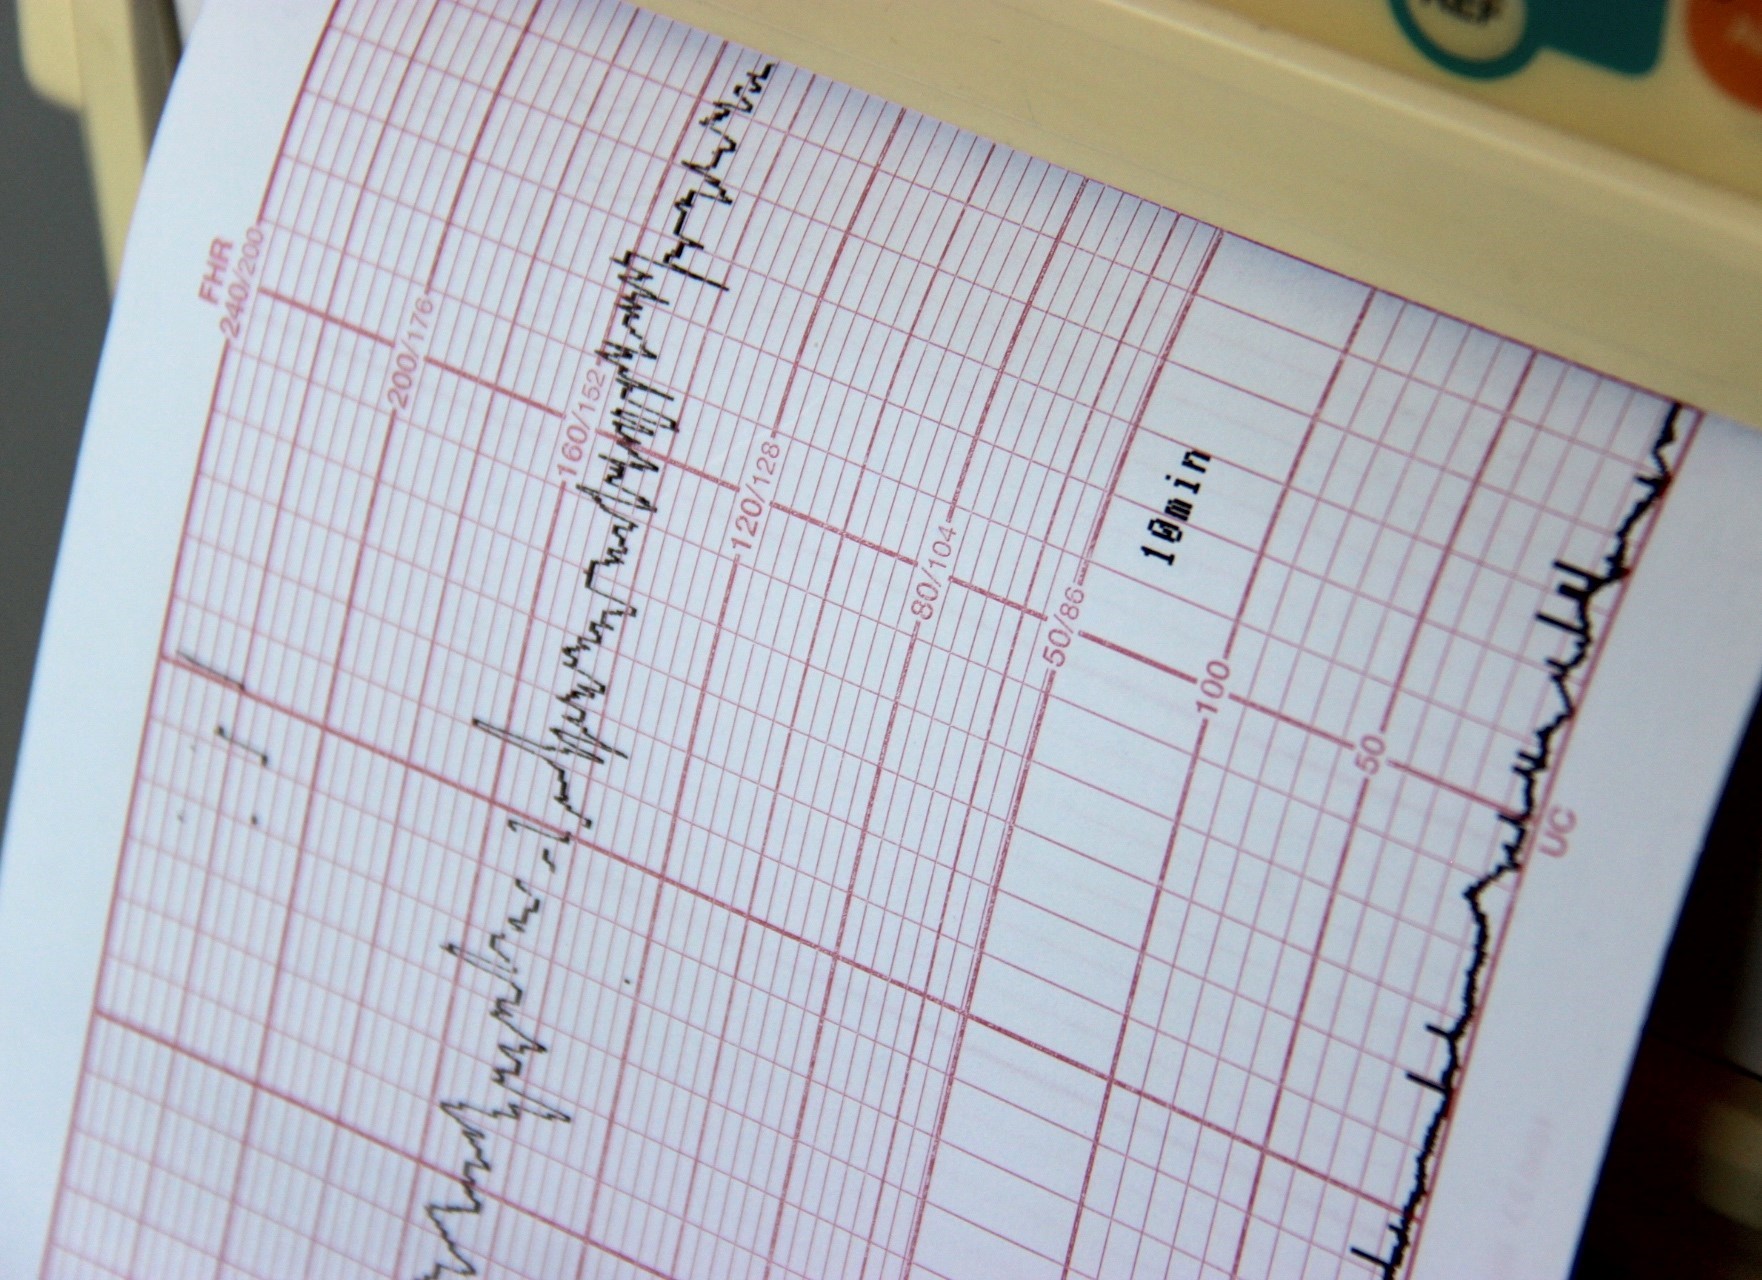 REF
FHR
240/200
200/176
160/152
120/128
80/104
50/86
10min
100
50
UC